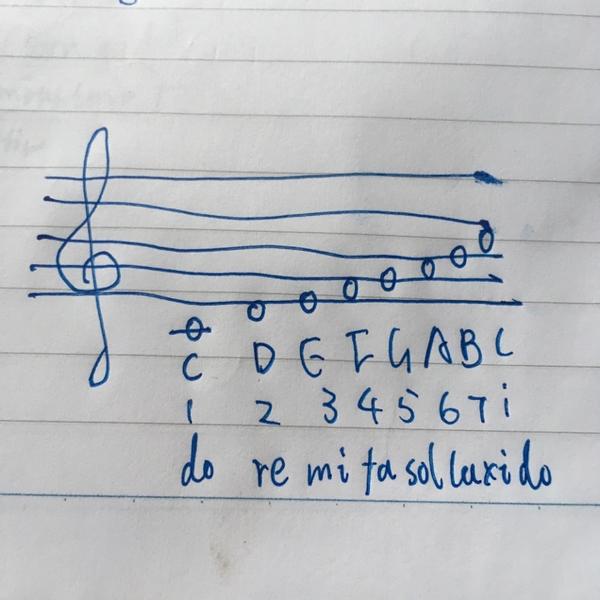 C D E F G A B C
1 2 3 4 5 6 7 i
do re mi fa sol la xi do